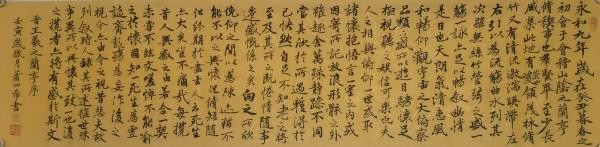 永和九年歲在癸丑暮春之
初會于會稽山陰之蘭亭
脩稧事也羣賢畢至少長
咸集此地有崇山峻領茂林脩
竹又有清流激湍暎帶左
右引以為流觴曲水列坐其
次雖無絲竹管弦之盛一
觴一詠亦足以暢敘幽情
是日也天朗氣清惠風
和暢仰觀宇宙之大俯察
品類之盛所以遊目騁懷足以
極視聽之娛信可樂也夫
人之相與俯仰一世或取
諸懷抱悟言一室之內或
因寄所託放浪形骸之外
雖趣舍萬殊靜躁不同
當其欣於所遇暫得於
己怏然自足不知老之將
至及其所之既惓情隨事
遷感慨係之矣向之所欣
俛仰之間以為陳迹猶不
能不以之興懷況脩短隨
化終期於盡古人云死生
亦大矣豈不痛哉每攬
昔人興感之由若合一契
未嘗不臨文嗟悼不能喻
之於懷固知一死生為虛
誕齊彭殤為妄作後之
視今亦由今之視昔悲夫故
列敘時人錄其所述雖世殊
事異所以興懷其致一也後
之攬者亦將有感於斯文
晉王羲之蘭亭序
壬寅歲月蕭書